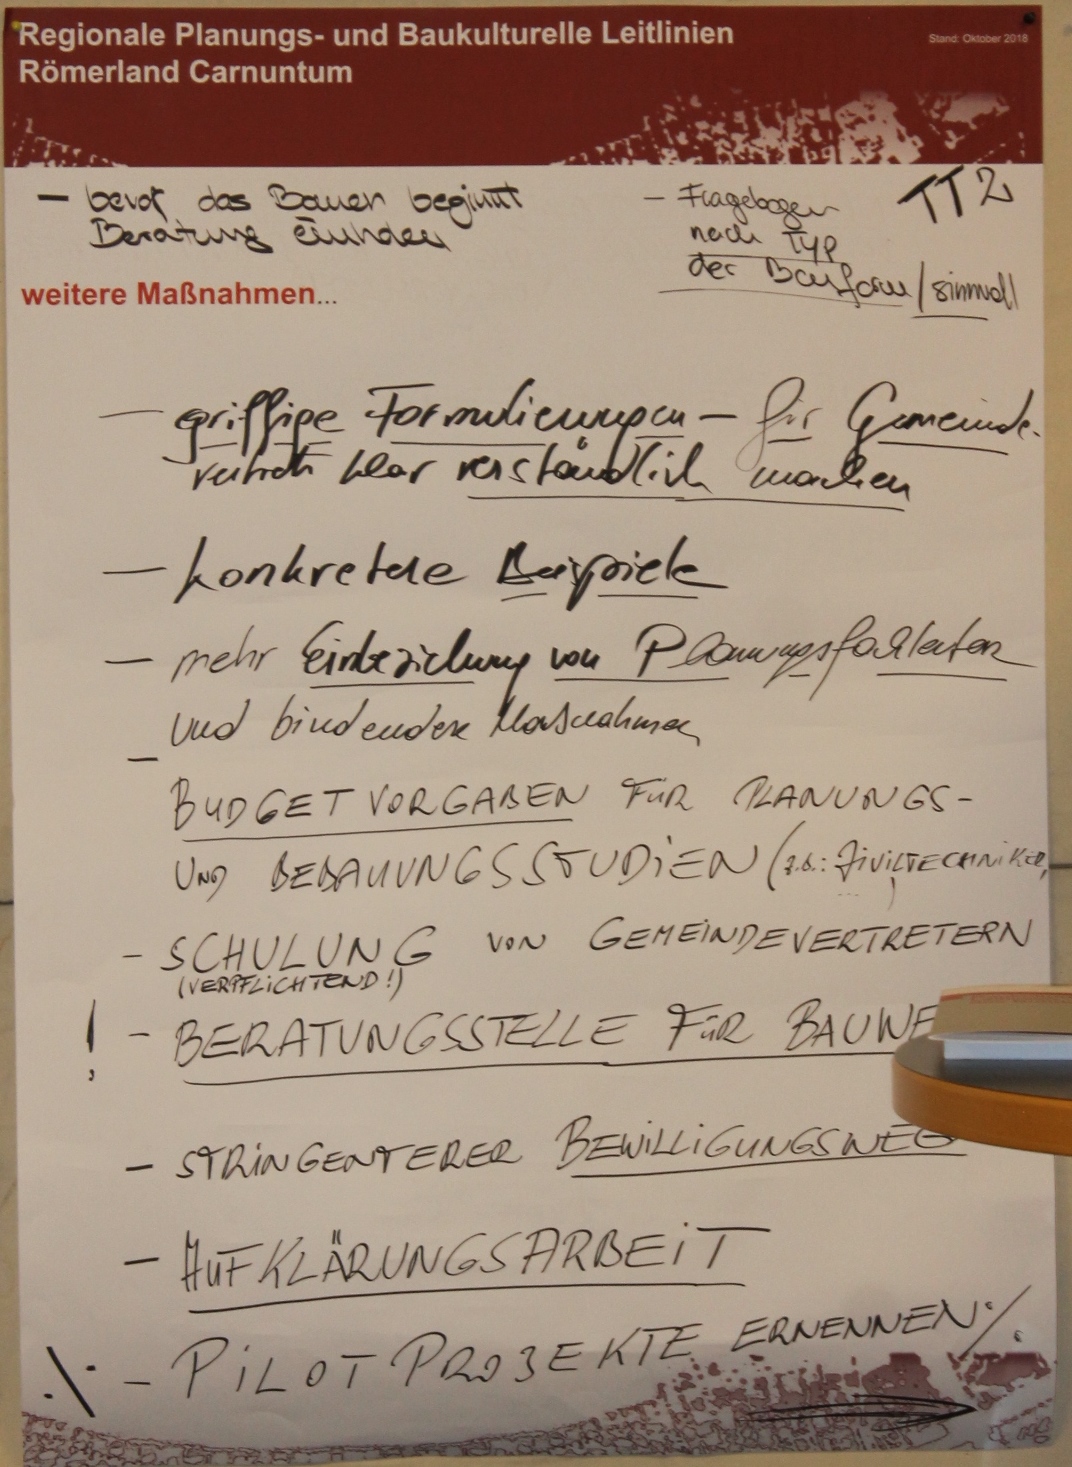 Regionale Planungs- und Baukulturelle Leitlinien
Stand: Oktober 2018
Römerland Carnuntum
TT2
– bevor das Bauen beginnt
Beratung
– Fragebogen
nach Typ
der Bauform / sinnvoll
weitere Maßnahmen...
– griffige Formulierungen – für Gemeinde-
klar verständlich machen
– konkrete Beispiele
– mehr Einbeziehung von Planungsfachleuten
und bindendere Massnahmen
– BUDGETVORGABEN FÜR PLANUNGS-
UND BEBAUUNGSSTUDIEN (z.B.: ZIVILTECHNIKER,
...)
– SCHULUNG VON GEMEINDEVERTRETERN
(VERPFLICHTEND!)
! – BERATUNGSSTELLE FÜR BAUWE
– STRINGENTERER BEWILLIGUNGSWEG
– AUFKLÄRUNGSARBEIT
.\. – PILOTPROJEKTE ERNENNEN ./.